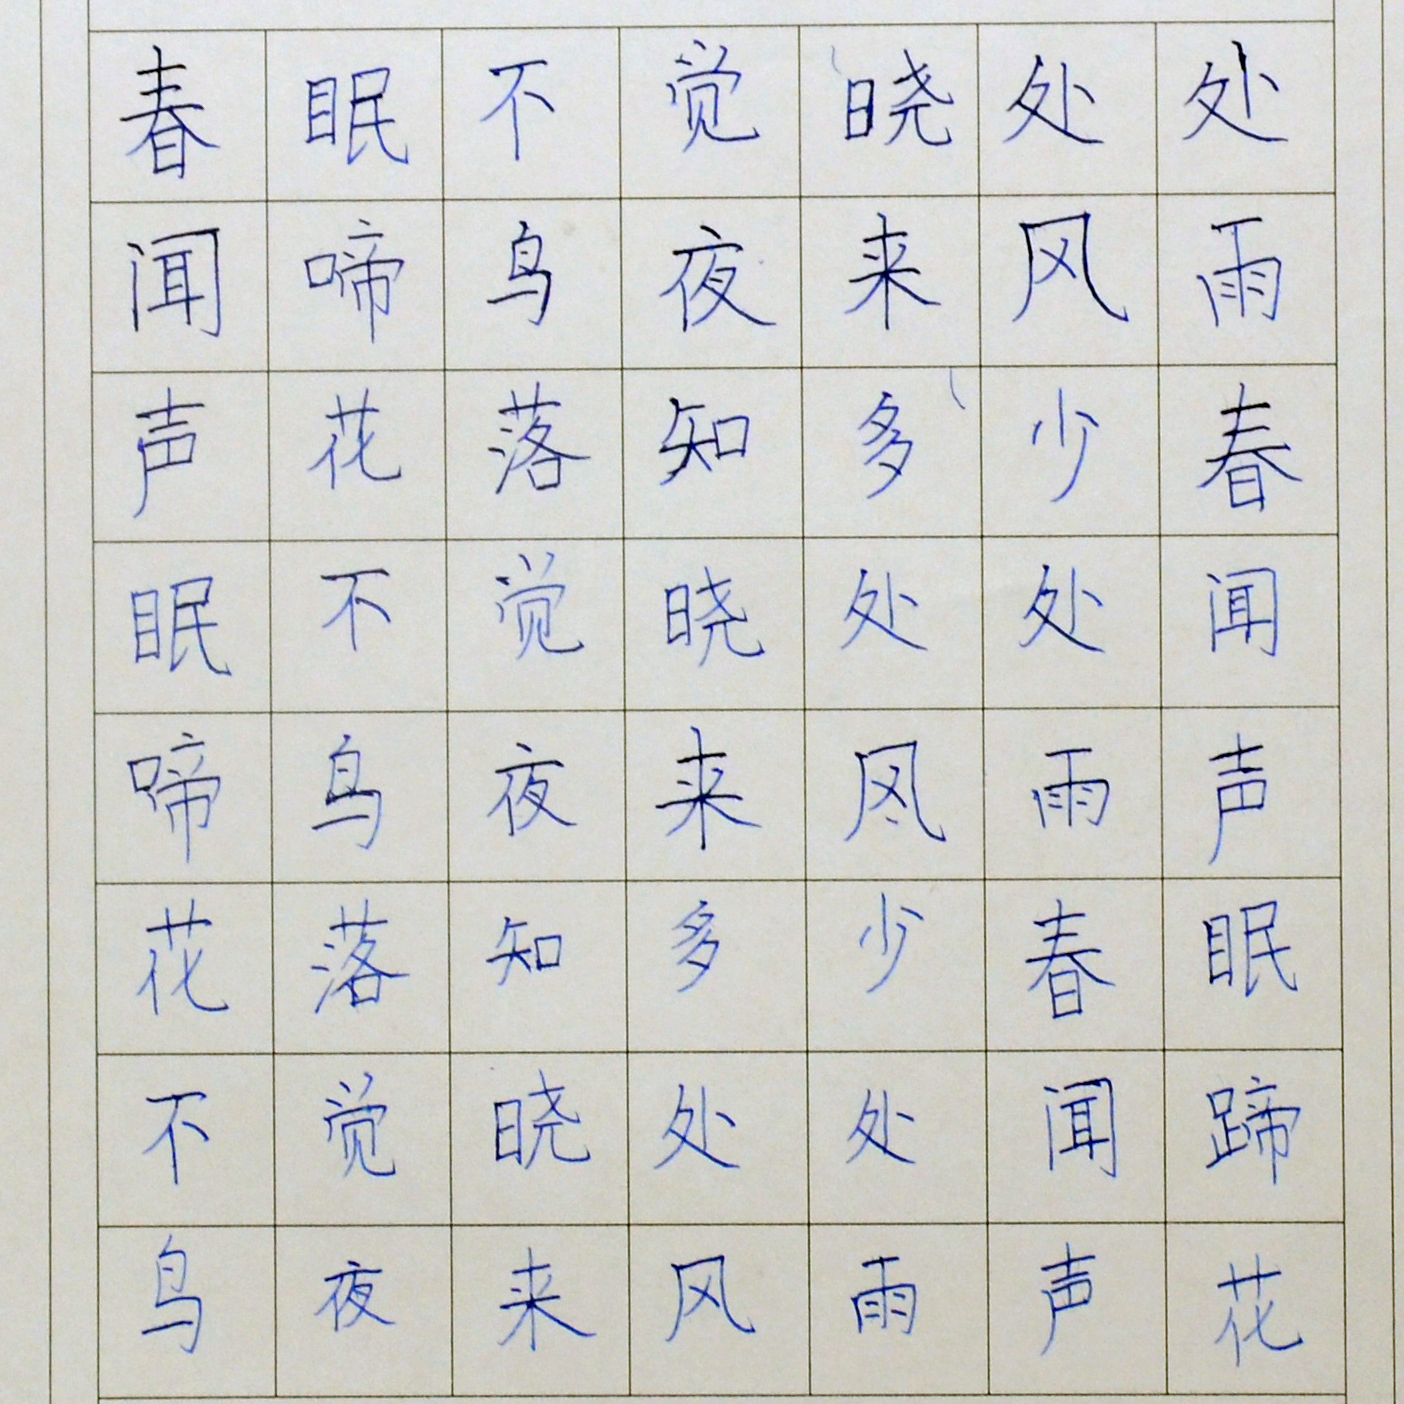 春眠不觉晓处处
闻啼鸟夜来风雨
声花落知多少春
眠不觉晓处处闻
啼鸟夜来风雨声
花落知多少春眠
不觉晓处处闻蹄
鸟夜来风雨声花